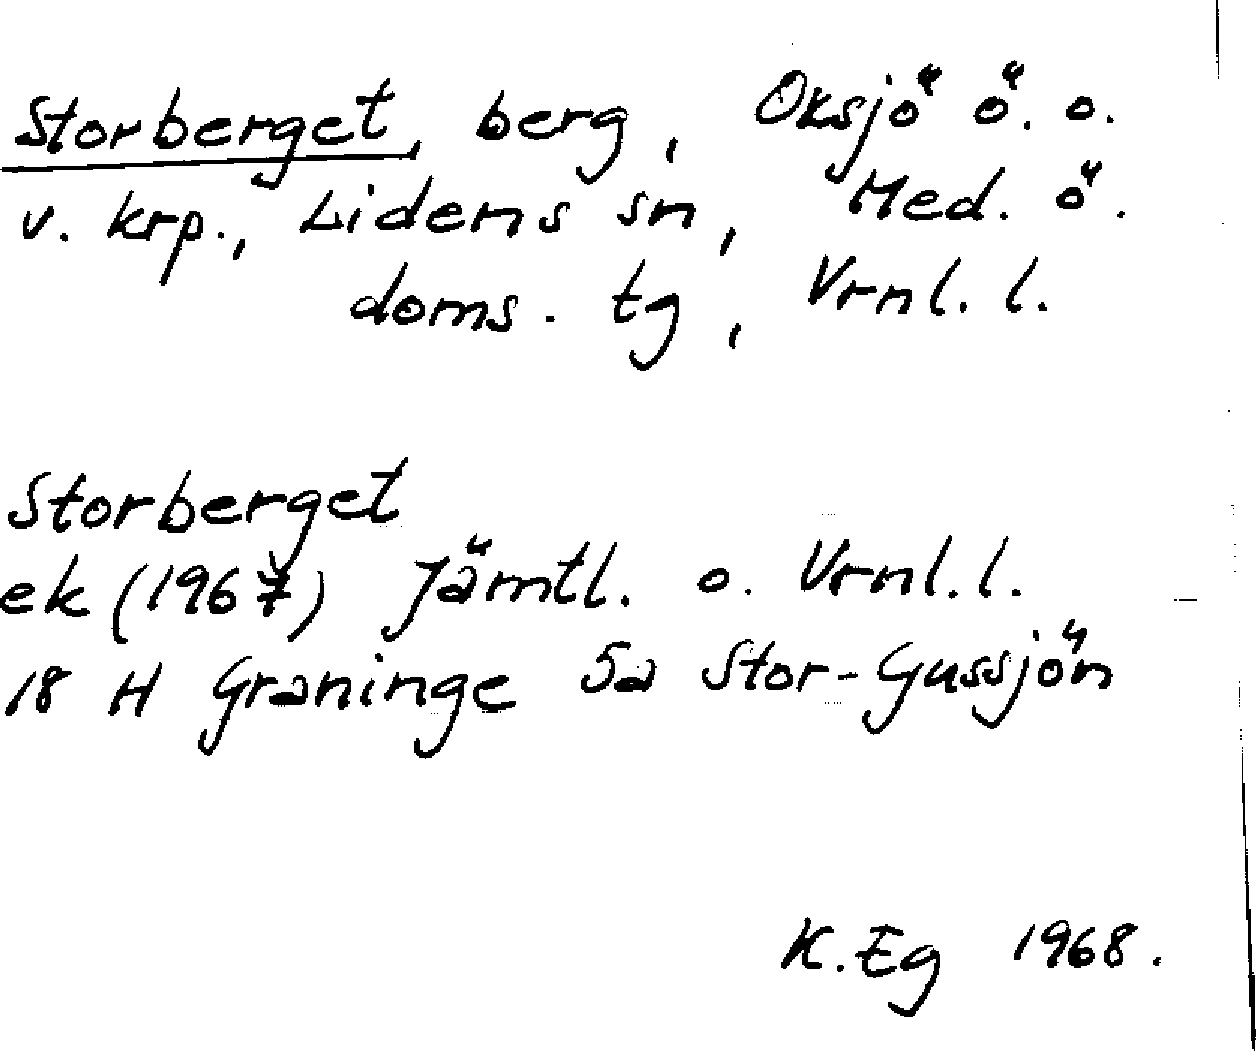 Storberget, berg, Oksjö ö. o.
v. krp., Lidens sn, Med. ö.
doms. tg, Vrnl. l.
Storberget
ek (1967) Jämtl. o. Vrnl. l.
18 H Graninge 5a Stor-Gussjön
K. Eg 1968.